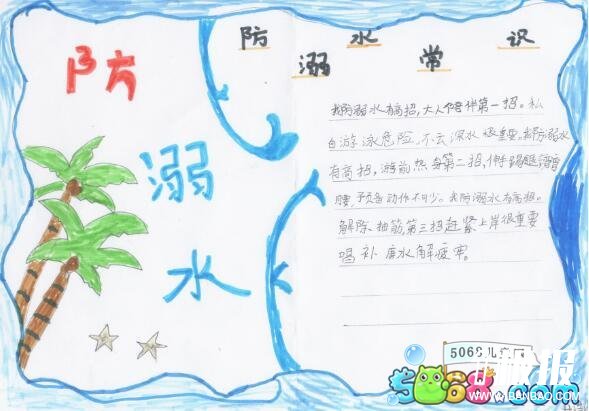 防
溺
水
防 水 识
溺 常
我防溺水有高招,大人陪伴第一招。私
自游泳危险,不去深水很重要。我防溺水
有高招,游前热身第二招,伸手踢腿
腰预备动作不可少。我防溺水有高招。
解除抽筋第三招赶紧上岸很重要
喝补 水解疲劳。
5068儿童网
5068.com
板报
WWW.BANBAO.COM